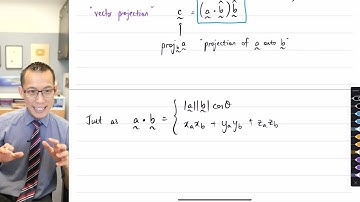 "vector projection" c = (a · b̂) b̂
proj_b a "projection of a onto b"
Just as a · b = { |a||b| cosθ
x_a x_b + y_a y_b + z_a z_b